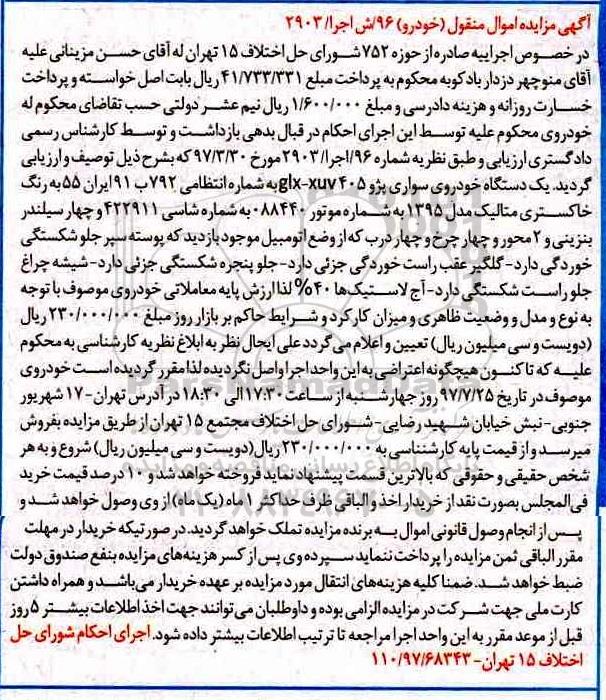 آگهی مزایده اموال منقول (خودرو) ۹۶/ش اجرا/ ۲۹۰۳
در خصوص اجراییه صادره از حوزه ۷۵۲ شورای حل اختلاف ۱۵ تهران له آقای حسن مزینانی علیه
آقای منوچهر دزدار بادکوبه محکوم به پرداخت مبلغ ۴۱/۷۳۳/۳۳۱ ریال بابت اصل خواسته و پرداخت
خسارت روزانه و هزینه دادرسی و مبلغ ۱/۶۰۰/۰۰۰ ریال نیم عشر دولتی حسب تقاضای محکوم له
خودروی محکوم علیه توسط این اجرای احکام در قبال بدهی بازداشت و توسط کارشناس رسمی
دادگستری ارزیابی و طبق نظریه شماره ۹۶/اجرا/۲۹۰۳ مورخ ۹۷/۳/۳۰ که بشرح ذیل توصیف و ارزیابی
گردید. یک دستگاه خودروی سواری پژو ۴۰۵ glx-xuv به شماره انتظامی ۷۹۲ب ۹۱ ایران ۵۵ به رنگ
خاکستری متالیک مدل ۱۳۹۵ به شماره موتور ۰۸۸۴۴۰ به شماره شاسی ۴۲۲۹۱۱ و چهار سیلندر
بنزینی و ۲ محور و چهار چرخ و چهار درب که از وضع اتومبیل موجود بازدید که پوسته سپر جلو شکستگی
خوردگی دارد- گلگیر عقب راست خوردگی جزئی دارد- جلو پنجره شکستگی جزئی دارد- شیشه چراغ
جلو راست شکستگی دارد- آج لاستیک‌ها ۴۰% لذا ارزش پایه معاملاتی خودروی موصوف با توجه
به نوع و مدل و وضعیت ظاهری و میزان کارکرد و شرایط حاکم بر بازار روز مبلغ ۲۳۰/۰۰۰/۰۰۰ ریال
(دویست و سی میلیون ریال) تعیین و اعلام می گردد علی ایحال نظر به ابلاغ نظریه کارشناسی به محکوم
علیه که تا کنون هیچگونه اعتراضی به این واحد اجرا واصل نگردیده لذا مقرر گردیده است خودروی
موصوف در تاریخ ۹۷/۷/۲۵ روز چهارشنبه از ساعت ۱۷:۳۰ الی ۱۸:۳۰ در آدرس تهران- ۱۷ شهریور
جنوبی- نبش خیابان شهید رضایی- شورای حل اختلاف مجتمع ۱۵ تهران از طریق مزایده بفروش
میرسد و از قیمت پایه کارشناسی به ۲۳۰/۰۰۰/۰۰۰ ریال(دویست و سی میلیون ریال) شروع و به هر
شخص حقیقی و حقوقی که بالاترین قسمت پیشنهاد نماید فروخته خواهد شد و ۱۰ درصد قیمت خرید
فی‌المجلس بصورت نقد از خریدار اخذ و الباقی ظرف حداکثر ۱ ماه (یک ماه) از وی وصول خواهد شد و
پس از انجام وصول قانونی اموال به برنده مزایده تملک خواهد گردید. در صورتیکه خریدار در مهلت
مقرر الباقی ثمن مزایده را پرداخت ننماید سپرده وی پس از کسر هزینه‌های مزایده بنفع صندوق دولت
ضبط خواهد شد. ضمنا کلیه هزینه‌های انتقال مورد مزایده بر عهده خریدار می‌باشد و همراه داشتن
کارت ملی جهت شرکت در مزایده الزامی بوده و داوطلبان می‌توانند جهت اخذ اطلاعات بیشتر ۵ روز
قبل از موعد مقرر به این واحد اجرا مراجعه تا ترتیب اطلاعات بیشتر داده شود. اجرای احکام شورای حل
اختلاف ۱۵ تهران- ۱۱۰/۹۷/۶۸۳۴۳